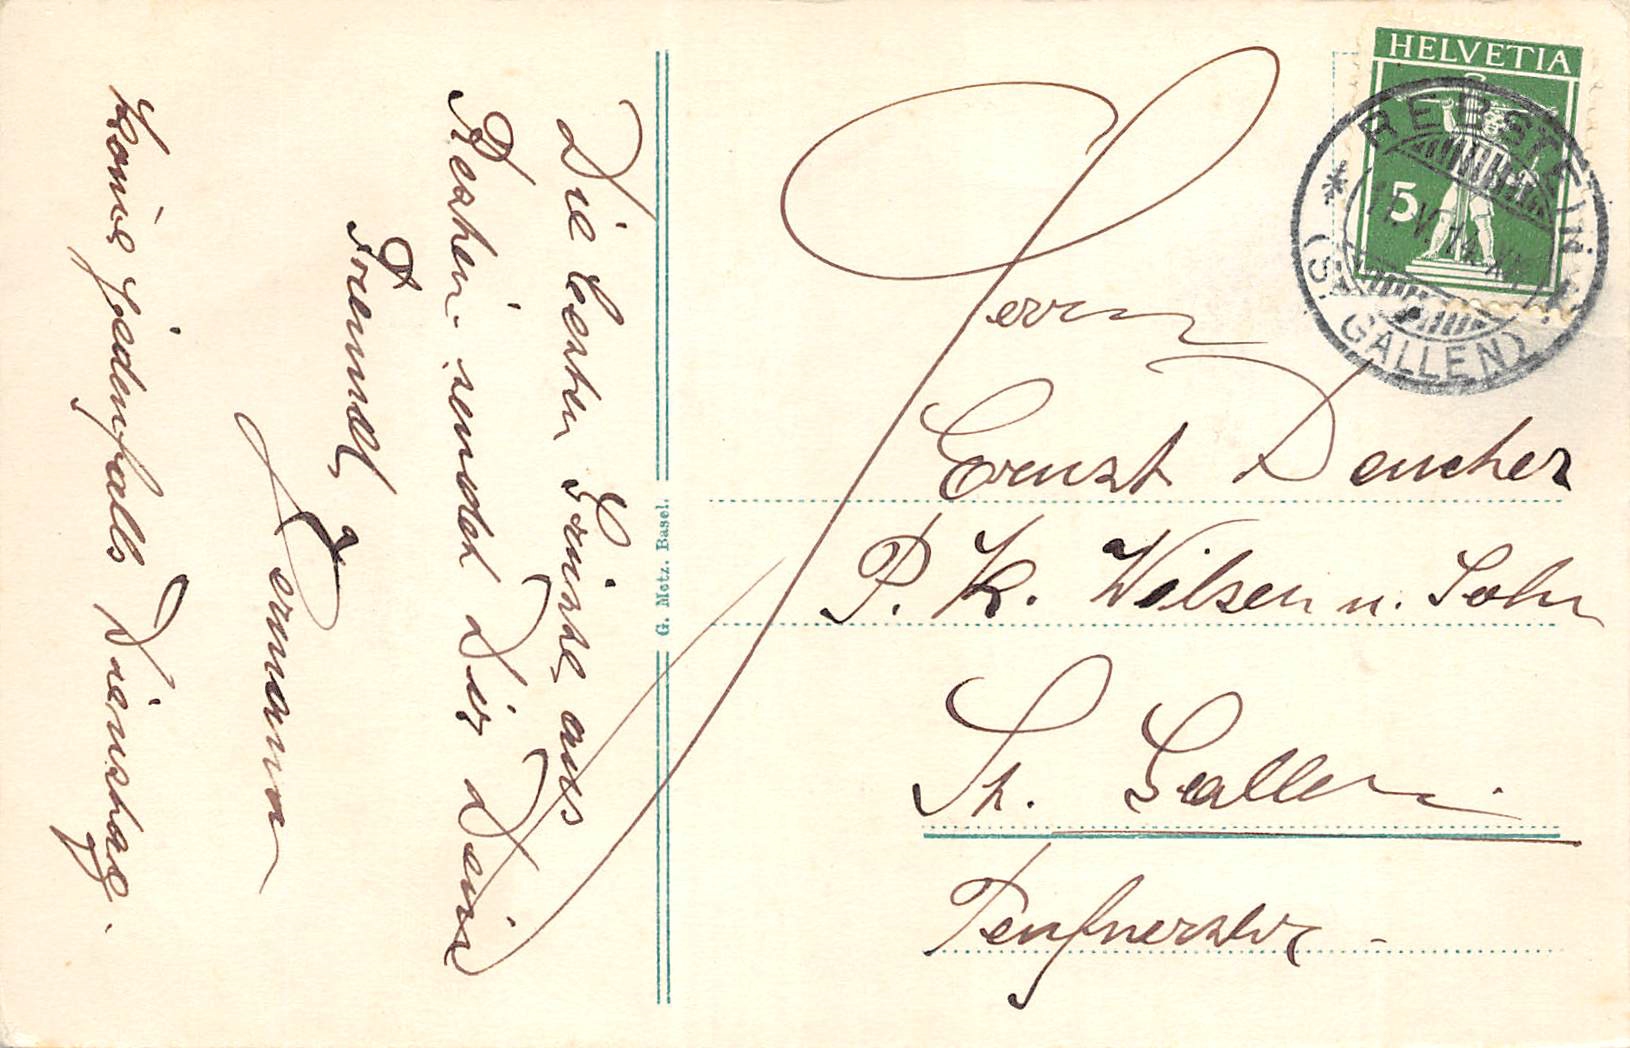 Die besten Grüsse aus
Resten sendet Dir Dein
Freund,
Hermann
Komme jedenfalls Dienstag.
G. Metz. Basel.
HELVETIA
5
REBSTEIN
(ST. GALLEN)
Herrn
Ernst Deucher
P. K. Wilsen u. Sohn
St. Gallen.